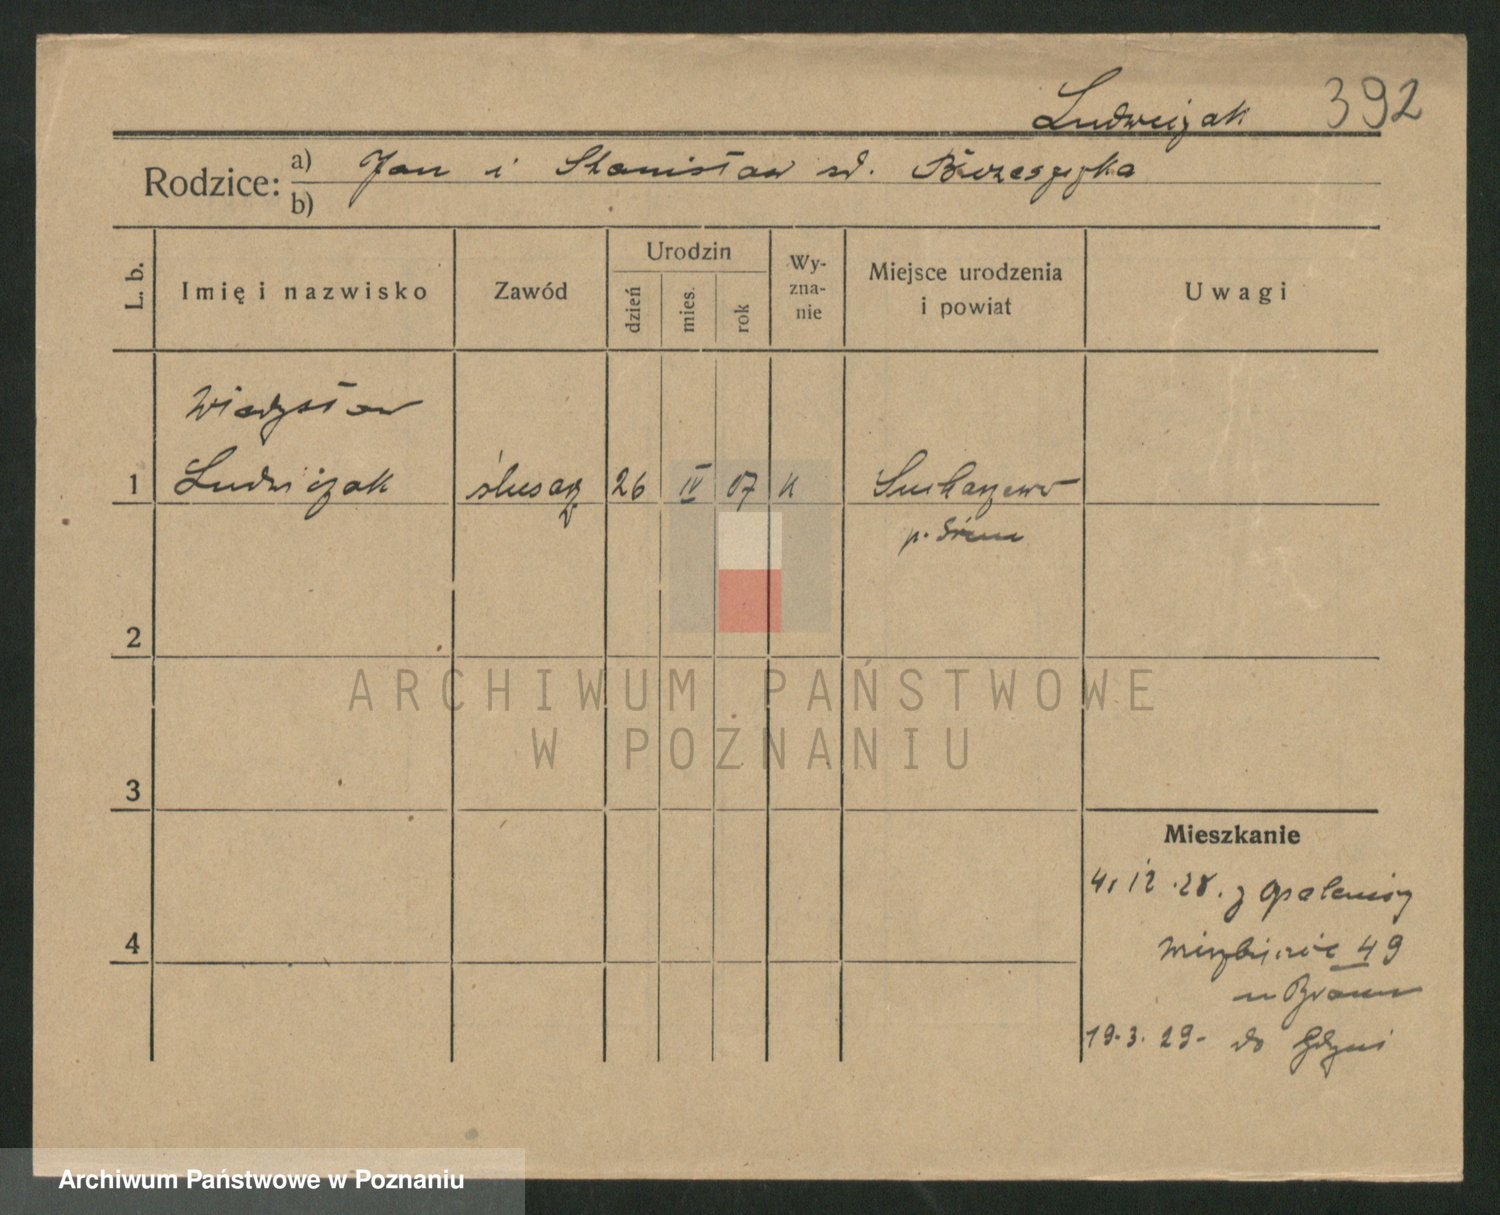 Ludwiczak 392
Rodzice: a) Jan i Stanisław
b)
L. b.
Imię i nazwisko
Zawód
Urodzin
dzień
mies.
rok
Wy-
zna-
nie
Miejsce urodzenia
i powiat
Uwagi
Władysław
1 Ludwiczak ślusarz 26 IV 07 k
p. Śrem
2
3
4
Mieszkanie
4.12.28. z Opalenicy
49
19.3.29- do Gdyni
ARCHIWUM PAŃSTWOWE
W POZNANIU
Archiwum Państwowe w Poznaniu